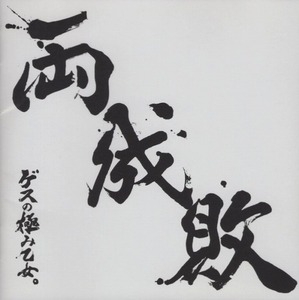 両成敗
ゲスの極み乙女。